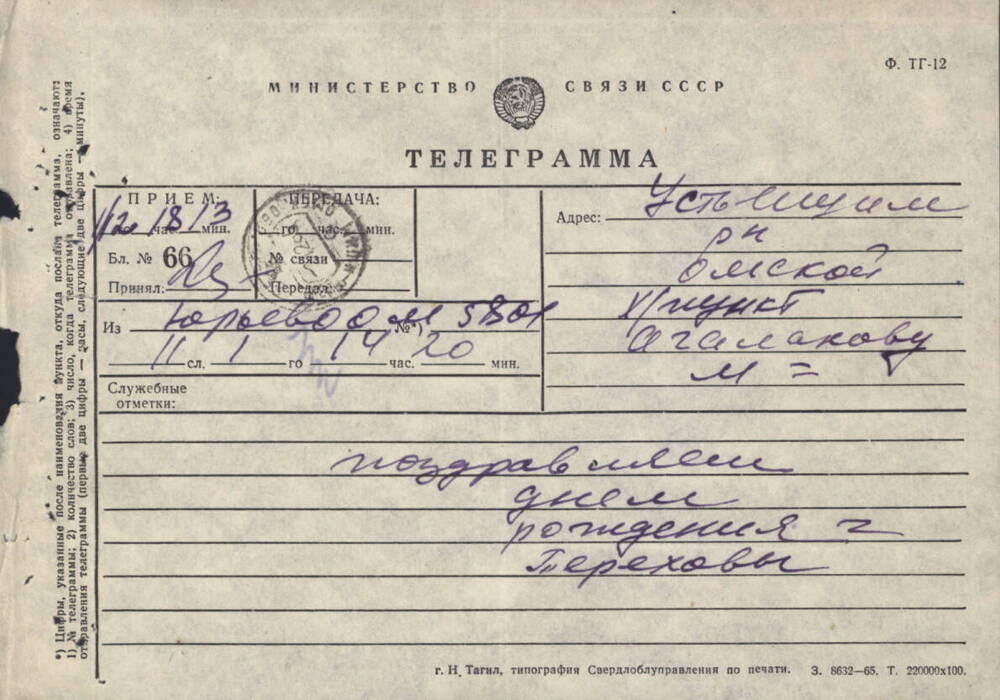 Ф. ТГ-12
МИНИСТЕРСТВО СВЯЗИ СССР
ТЕЛЕГРАММА
ПРИЕМ:
час. мин.
Бл. № 66
Принял:
ПЕРЕДАЧА:
го час. мин.
№ связи
Передал:
Адрес: Усть ишим
рн
омской
х/пункт
Агалакову
м =
Из Юрьево ом № *) 5801
11 сл. 1 го 14 час. 20 мин.
Служебные
отметки:
поздравляем
днем
рождения =
Тереховы
*) Цифры, указанные после наименования пункта, откуда послана телеграмма, означают:
1) № телеграммы; 2) количество слов; 3) число, когда телеграмма отправлена; 4) время
отправления телеграммы (первые две цифры — часы, следующие две цифры — минуты).
г. Н. Тагил, типография Свердлоблуправления по печати. З. 8632—65. Т. 220000х100.